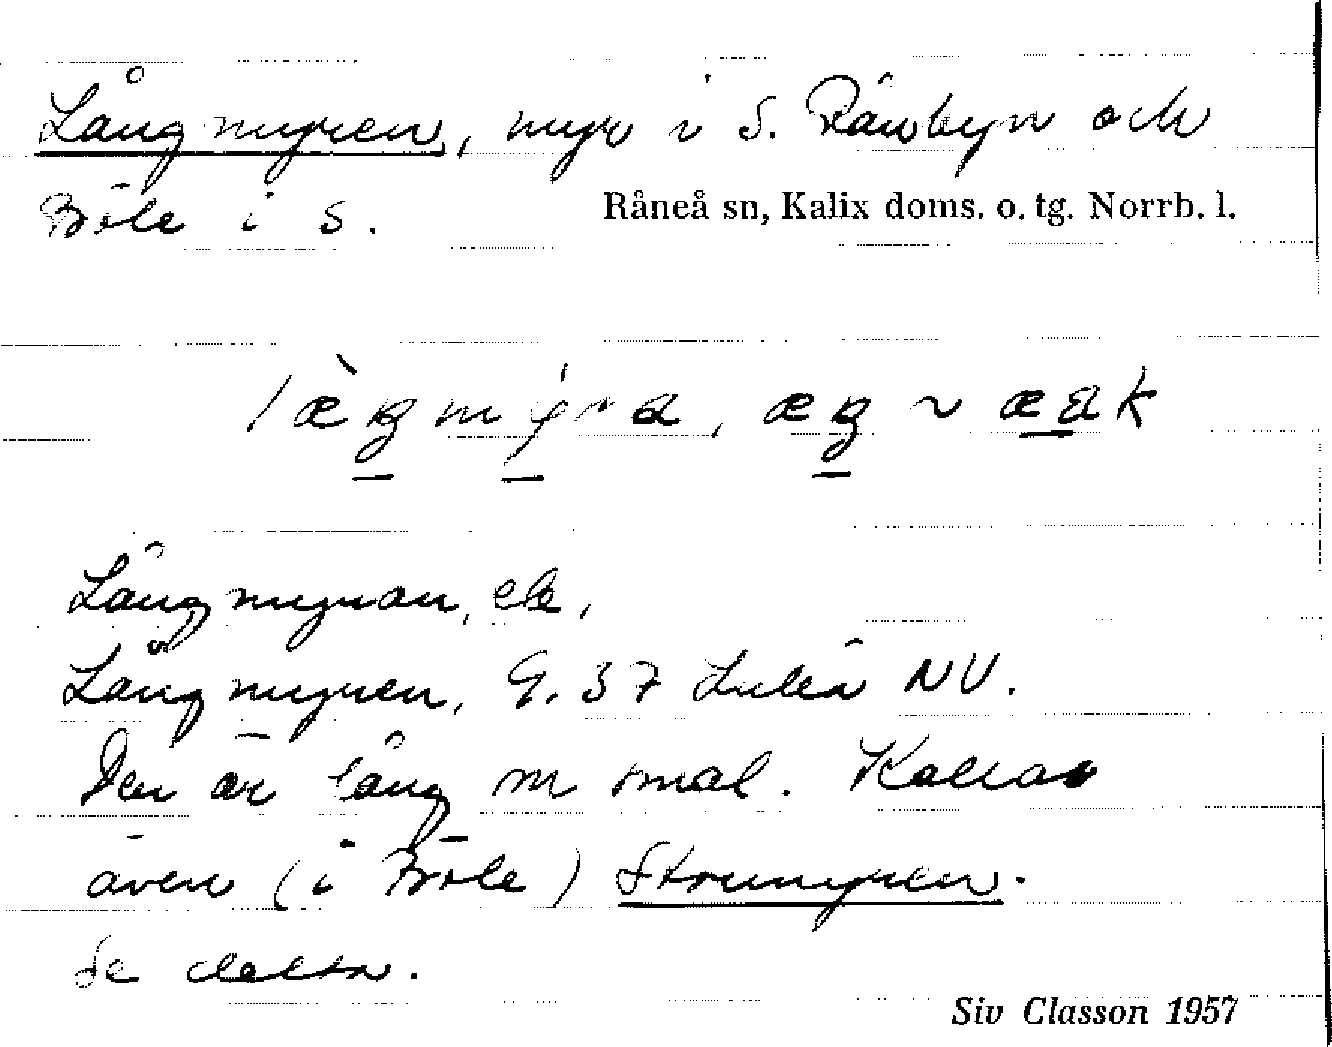 Långmyren, myr i S. Rånbyn och
Böle i S. Råneå sn, Kalix doms. o. tg. Norrb. l.
Långmyran, el.
Långmyren, G. 37 Luleå NV.
Den är lång o smal. Kallas
även (i Böle) Stormyren.
Se detta.
Siv Classon 1957